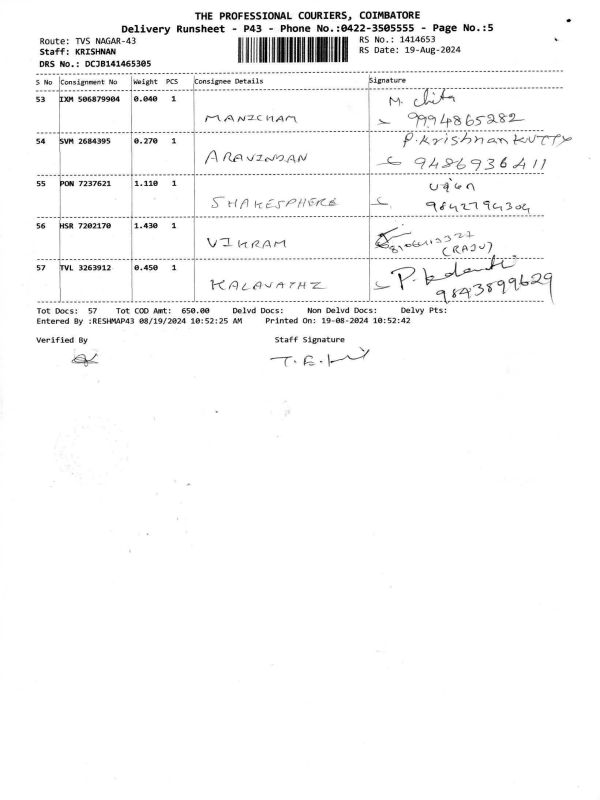 THE PROFESSIONAL COURIERS, COIMBATORE
Delivery Runsheet - P43 - Phone No.:0422-3505555 - Page No.:5
Route: TVS NAGAR-43
RS No.: 1414653
Staff: KRISHNAN
RS Date: 19-Aug-2024
DRS No.: DCJB141465305
S No Consignment No Weight PCS Consignee Details Signature
53 IXM 506879904 0.040 1 MANICHAM M. Chita
9994865282
54 SVM 2684395 0.270 1 ARAVINDAN P.KrishnanKUTTY
9486936411
55 PON 7237621 1.110 1 SHAKESPHERE
9842794304
56 HSR 7202170 1.430 1 VIKRAM
(RAJU)
57 TVL 3263912 0.450 1 KALAVATHI P.
9843899629
Tot Docs: 57 Tot COD Amt: 650.00 Delvd Docs: Non Delvd Docs: Delvy Pts:
Entered By :RESHMAP43 08/19/2024 10:52:25 AM Printed On: 19-08-2024 10:52:42
Verified By Staff Signature